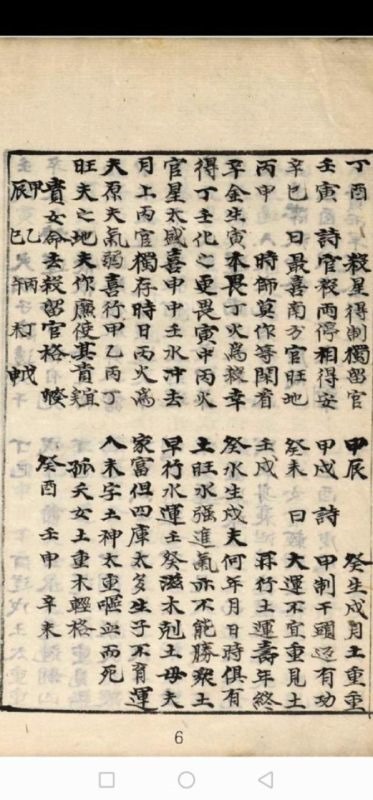 丁酉 殺星得制獨留官
壬寅 詩 官殺兩停相得安
辛巳 日 最喜南方官旺地
丙申 時師莫作等閑看
辛金生寅本畏丁火為殺幸
得丁壬化之更畏寅中丙火
官星太盛喜申中壬水冲去
月上丙官獨存時日丙火為
夫原夫氣弱喜行甲乙丙丁
旺夫之地夫作廉使其貴
貴女命去殺留官格
甲乙丙丁戊
辰巳午未申
甲辰 癸生戌月土重重
甲戌 詩 甲制干頭有功
癸未 女日 大運不宜重見土
壬戌 再行土運壽年終
癸水生戌夫何年月日時俱有
土旺水强進氣亦不能勝衆土
早行水運壬癸滋木剋土母夫
家富但四庫太多生子不育運
入未字土神太重嘔血而死
孤夭女土重木輕格
癸酉 壬申 辛未
6